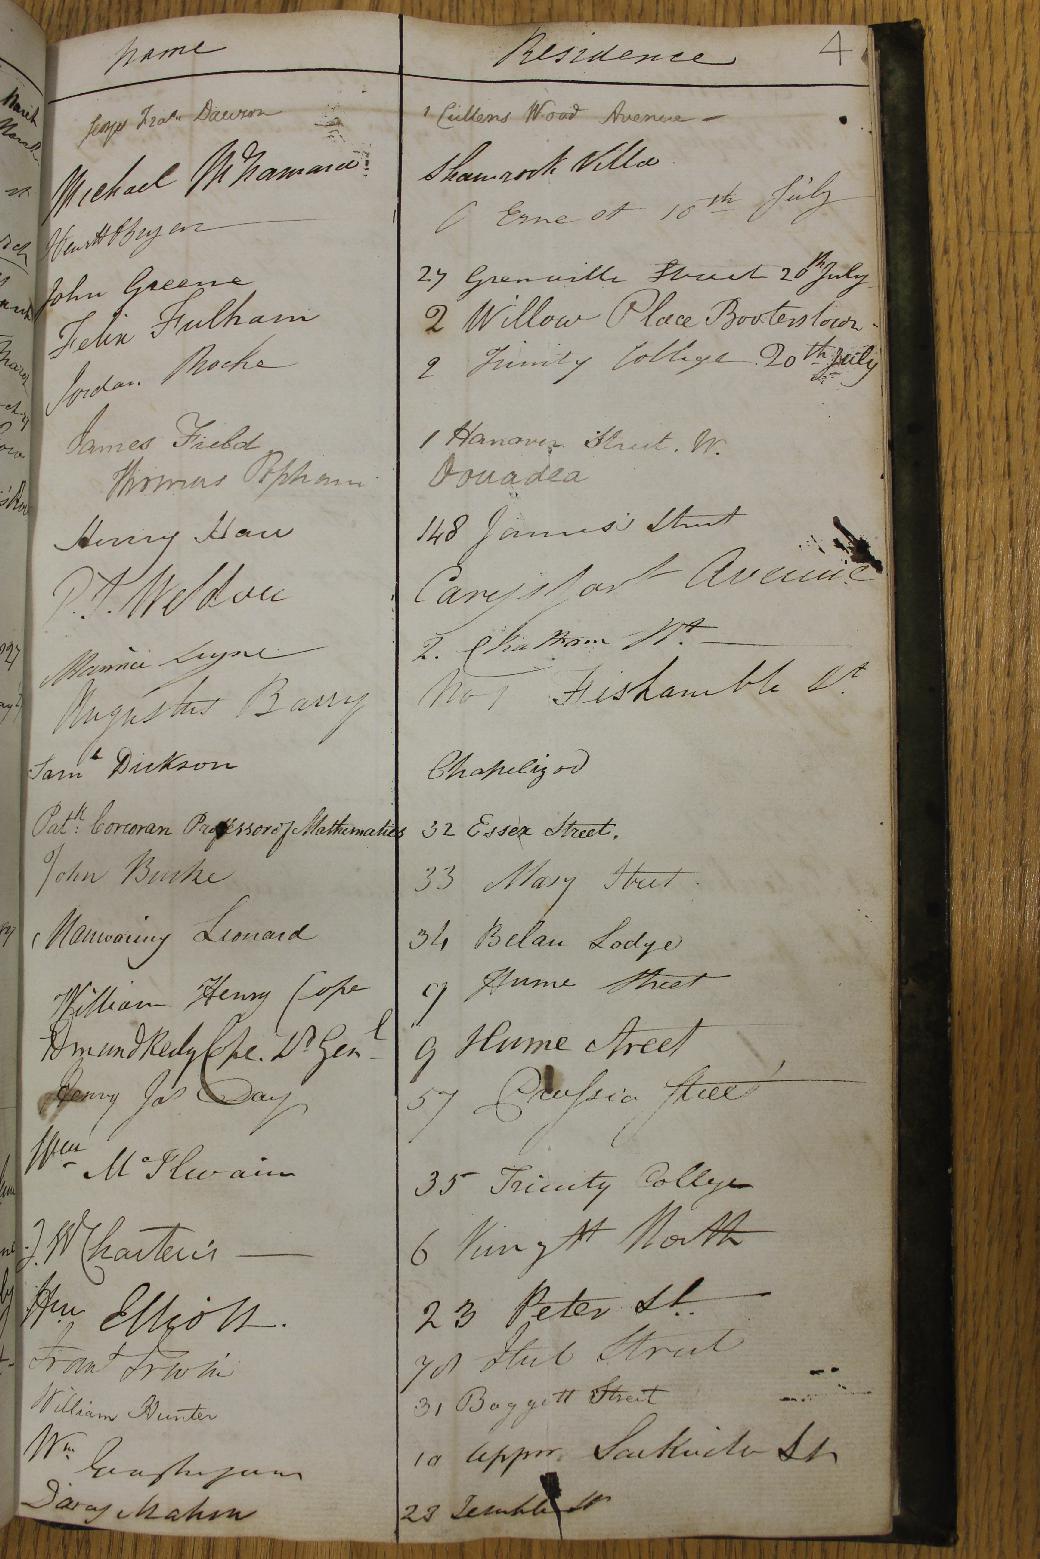 Name Residence 4
Dawson 1 Cullens Wood Avenue
Michael McNamara Shamrock Villa
6 Erne st 10th July
John Greene 27 Grenville Street 20th July
Felix Fulham 2 Willow Place Booterstown
Jordan Roche 2 Trinity College 20th July
James Field 1 Hanover Street. W.
Thomas Popham Donadea
Henry Haw 148 James's Street
P.J. Weldon Carysfort Avenue
Maurice Leyne 2. Chatham St
Augustus Barry No 1 Fishamble St
Saml Dickson Chapelizod
Patk. Corcoran Professor of Mathematics 32 Essex Street.
John Burke 33 Mary Street
Manwaring Leonard 34 Belan Lodge
William Henry Cope 9 Hume Street
Cope. 9 Hume Street
Henry Jas Day 57 Prussia Street
Wm McIlwain 35 Trinity College
J. W Charteris 6 King St North
Elliott. 23 Peter St.
Frans Irwin 78 Street
William Hunter 31 Baggott Street
Wm. 10 uppr. Sackville St
Darcy Mahon 23 Temple St